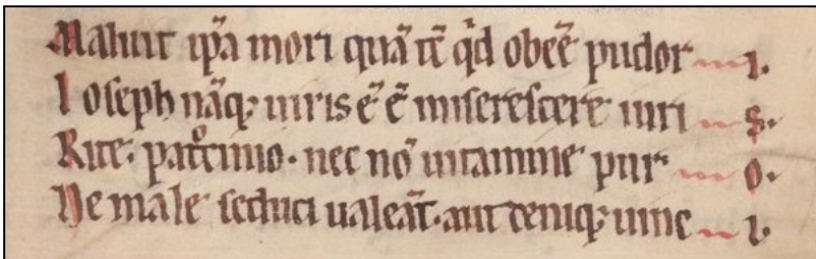 Maluit ip̄a mori quā tc̄ qd̄ obeē pudor ı.
Ioseph nāq; iuris ē ē miserescere uiri s.
Rite. patͦcinio. nec nō iuuamine pur o.
Ne male seduci ualeāt. aut deniq; uinc ı.